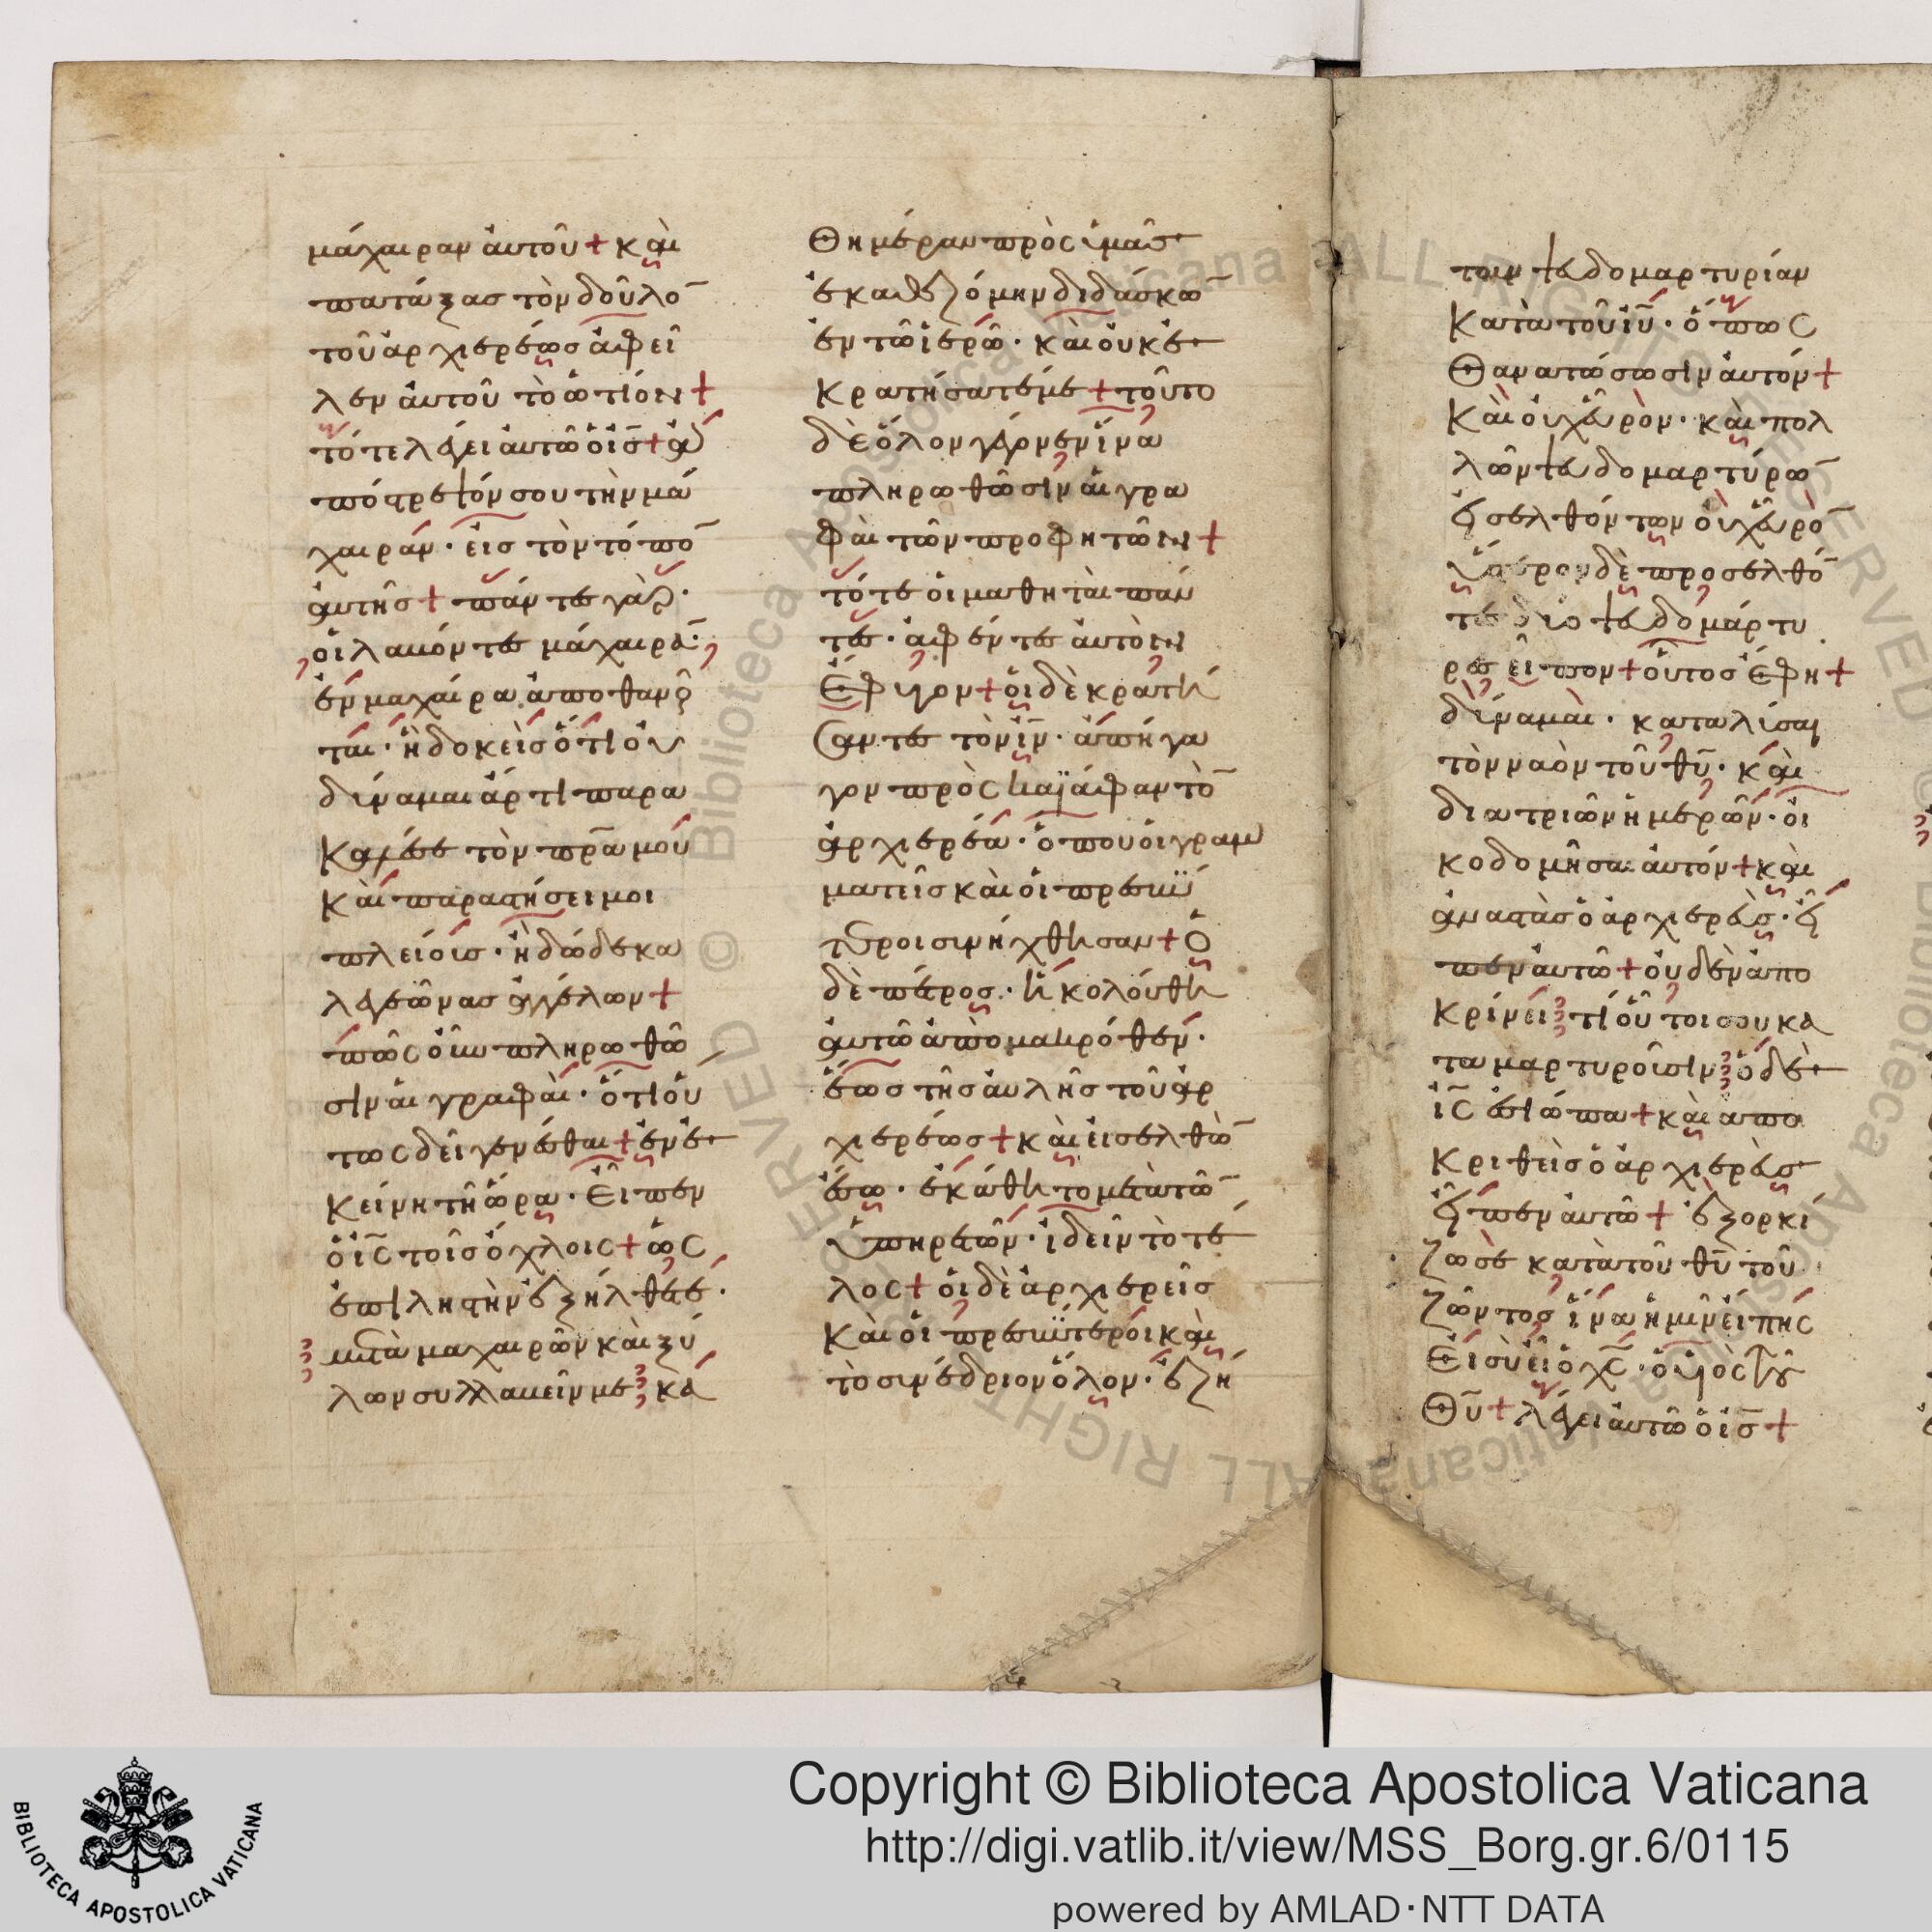 μάχαιραν ἀυτοῦ + κὰι
πατάξασ τὸν δοῦλο̅
τοῦ ἀρχιερέωσ ἀφεῖ
λεν ἀυτοῦ τὸ ὠτίον +
τότε λέγει ἀυτῶ ὁ ι̅σ̅ + ἀ
πόστρεψόν σου τὴν μά
χαιράν · εἰσ τὸν τόπο̅
ἀυτῆσ + πάντες γὰρ ·
ὁι λαβόντες μάχαιρα̅ ·
ἐν μαχαίρα ἀποθανοῦ
ται · ἢ δοκεὶσ ὅτι ὀυ
δύναμαι ἄρτι παρα
καλέσαι τὸν π̅ρ̅α μού
κὰι παραστήσει μοι
πλείόυσ · ἢ δώδεκα
λεγεῶνασ ἀγγέλων +
πῶς ὀῦν πληρωθῶ
σιν ἁι γραφὰι · ὅτι όὑ
τως δεῖ γενέσθαι + ἐν ἐ
κείνη τῆ ὥρα · Εἶπεν
ὁ ι̅ς̅ τοῖσ ὄχλοις + ὡς
ἐπι ληστὴν ἐξήλθετε ·
μετὰ μαχαιρῶν κὰι ξύ
λων συλλαβεῖν με · κα
Θημέραν πρὸς ὑμᾶσ
ἐκαθεζόμην διδάσκω̅
ἐν τῶ ἱερῶ · κὰι ὀυκ ἐ
κρατήσατέ με + τοῦτο
δὲ ὅλον γέγονεν ἵνα
πληρωθῶσιν ἁι γρα
φὰι τῶν προφητῶν +
τότε ὁι μαθητὰι πάν
τες · ἀφέντες ἀυτὸν
Ἔφυγον + ὁι δὲ κρατή
Σαντες τὸν ι̅ν̅ · ἀπήγα
γον πρὸς καϊάφαν τὸ̅
ἀρχιερέα · ὅπου ὁι γραμ
ματεῖσ κὰι ὁι πρεσβύ
τεροι σιμήχθησαν + Ὁ
δὲ πέτροσ · ἠκολόυθη
ἀυτῶ ἀπὸ μακρόθεν ·
ἕωσ τῆσ ἀυλῆσ τοῦ ἀρ
χιερέωσ + κὰι ἐισελθὼ̅
ἔσω · ἐκάθητο μετὰ τῶ̅
Ὑπηρετῶν · ἰδεῖν τὸ τέ
λος + ὁι δὲ ἀρχιερεῖσ
κὰι ὁι πρεσβύτερόι κὰι
τὸ σινέδριον ὅλον · ἐζή
τουν ψευδομαρτυρίαν
Κατὰ τοῦ ι̅υ̅ · ὅπως
Θανατώσωσιν ἀυτόν +
Κὰι ὀυχ ἑυρὸν · κὰι πολ
λῶν ψευδομαρτύρω̅
ἐισελθόντων ὀυχ ἑυρὸ̅
Ὕστερον δὲ προσελθό̅
τες δύο ψευδομάρτυ
ρεσ εἶπον + ὁυτοσ Ἔφη +
δύναμαι · καταλύσαι
τὸν ναὸν τοῦ θ̅υ̅ · κὰι
δια τριῶν ἡμερῶν · ὀι
κοδομῆσαι ἀυτόν + κὰι
ἀναστὰσ ὁ ἀρχιερεὺσ · εἶ
πεν ἀυτῶ + ὀυδὲν ἀπο
Κρίνει τί οὗτοι σου κα
ταμαρτυροῦσιν ὁ δὲ
ι̅ς̅ ἐσιώπα + κὰι απο
Κριθεὶσ ὁ ἀρχιερεὺσ
εἶπεν ἀυτῶ + ἐξορκί
ζω σὲ κατὰ τοῦ θ̅υ̅ τοῦ
ζῶντοσ ἵνα ἡμῖν εἴπης
Εἰ σὺ εἶ ὁ χ̅ς̅ · ὁ ὑιὸς τοῦ
Θ̅υ̅ + λέγει ἀυτῶ ὁ ι̅σ̅ +
Copyright © Biblioteca Apostolica Vaticana
http://digi.vatlib.it/view/MSS_Borg.gr.6/0115
powered by AMLAD·NTT DATA
BIBLIOTECA APOSTOLICA VATICANA